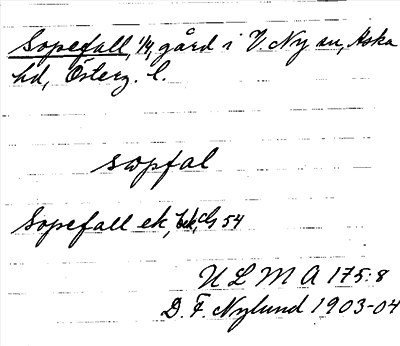 Sopefall, 1/4, gård i V. Ny sn, Aska
hd, Österg. l.
swpfal
Sopefall ek, 54
U L M A 175:8
D. F. Nylund 1903-04